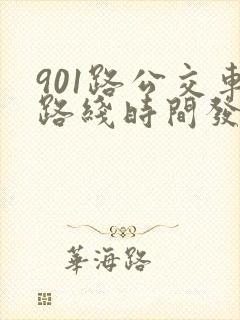 901路公交車
路綫時間發
華海路